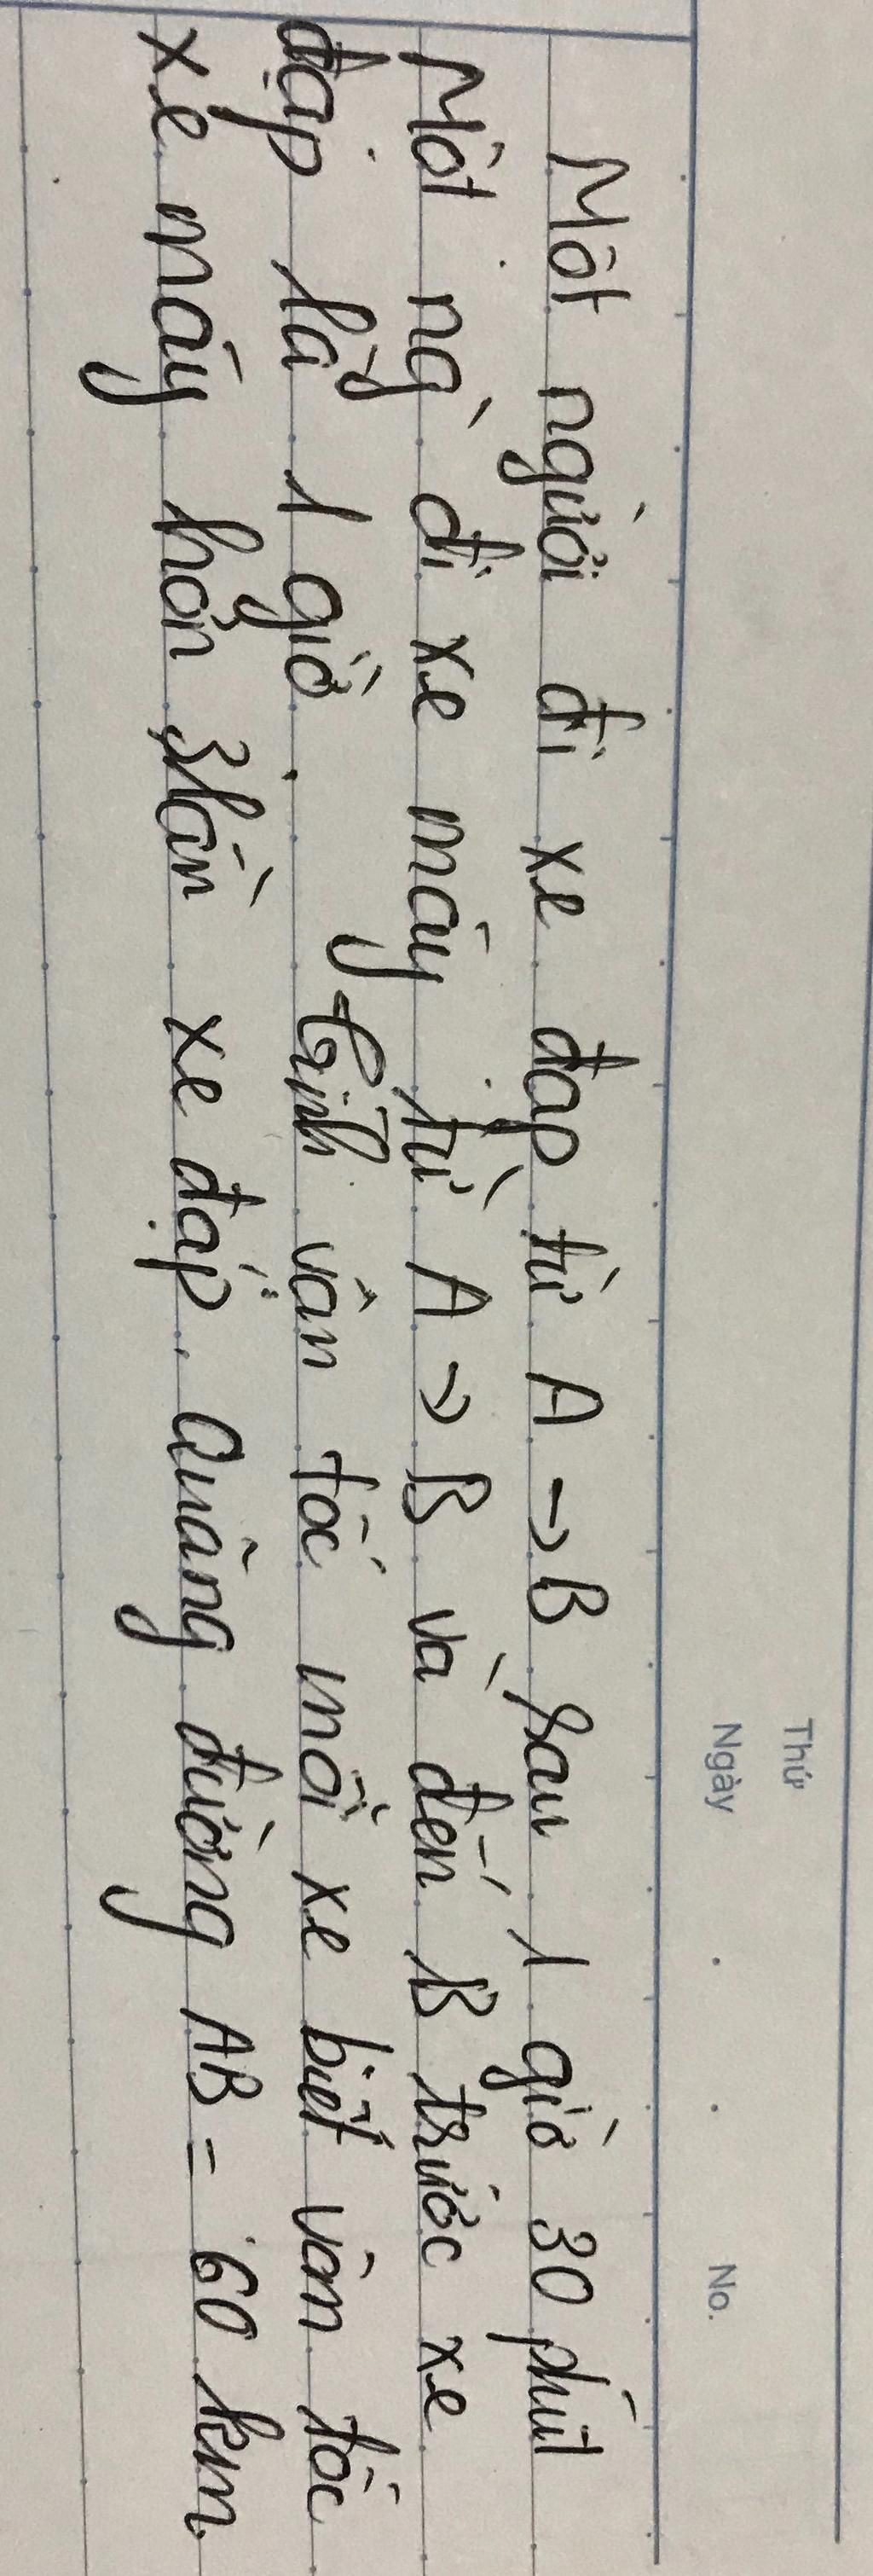 Thứ
Ngày . . No.
Một người đi xe đạp từ A → B sau 1 giờ 30 phút
Một ng` đi xe máy từ A → B và đến B trước xe
đạp là 1 giờ. Tính vận tốc mỗi xe biết vận tốc
xe máy hơn 3 lần xe đạp. Quãng đường AB = 60 km.